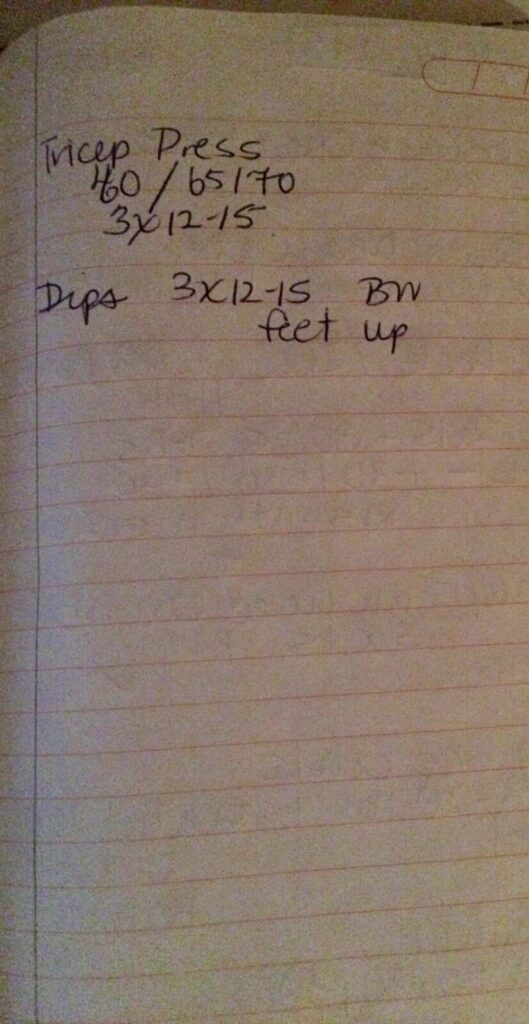 Tricep Press
60 / 65 / 70
3x12-15
Dips 3x12-15 BW
feet up